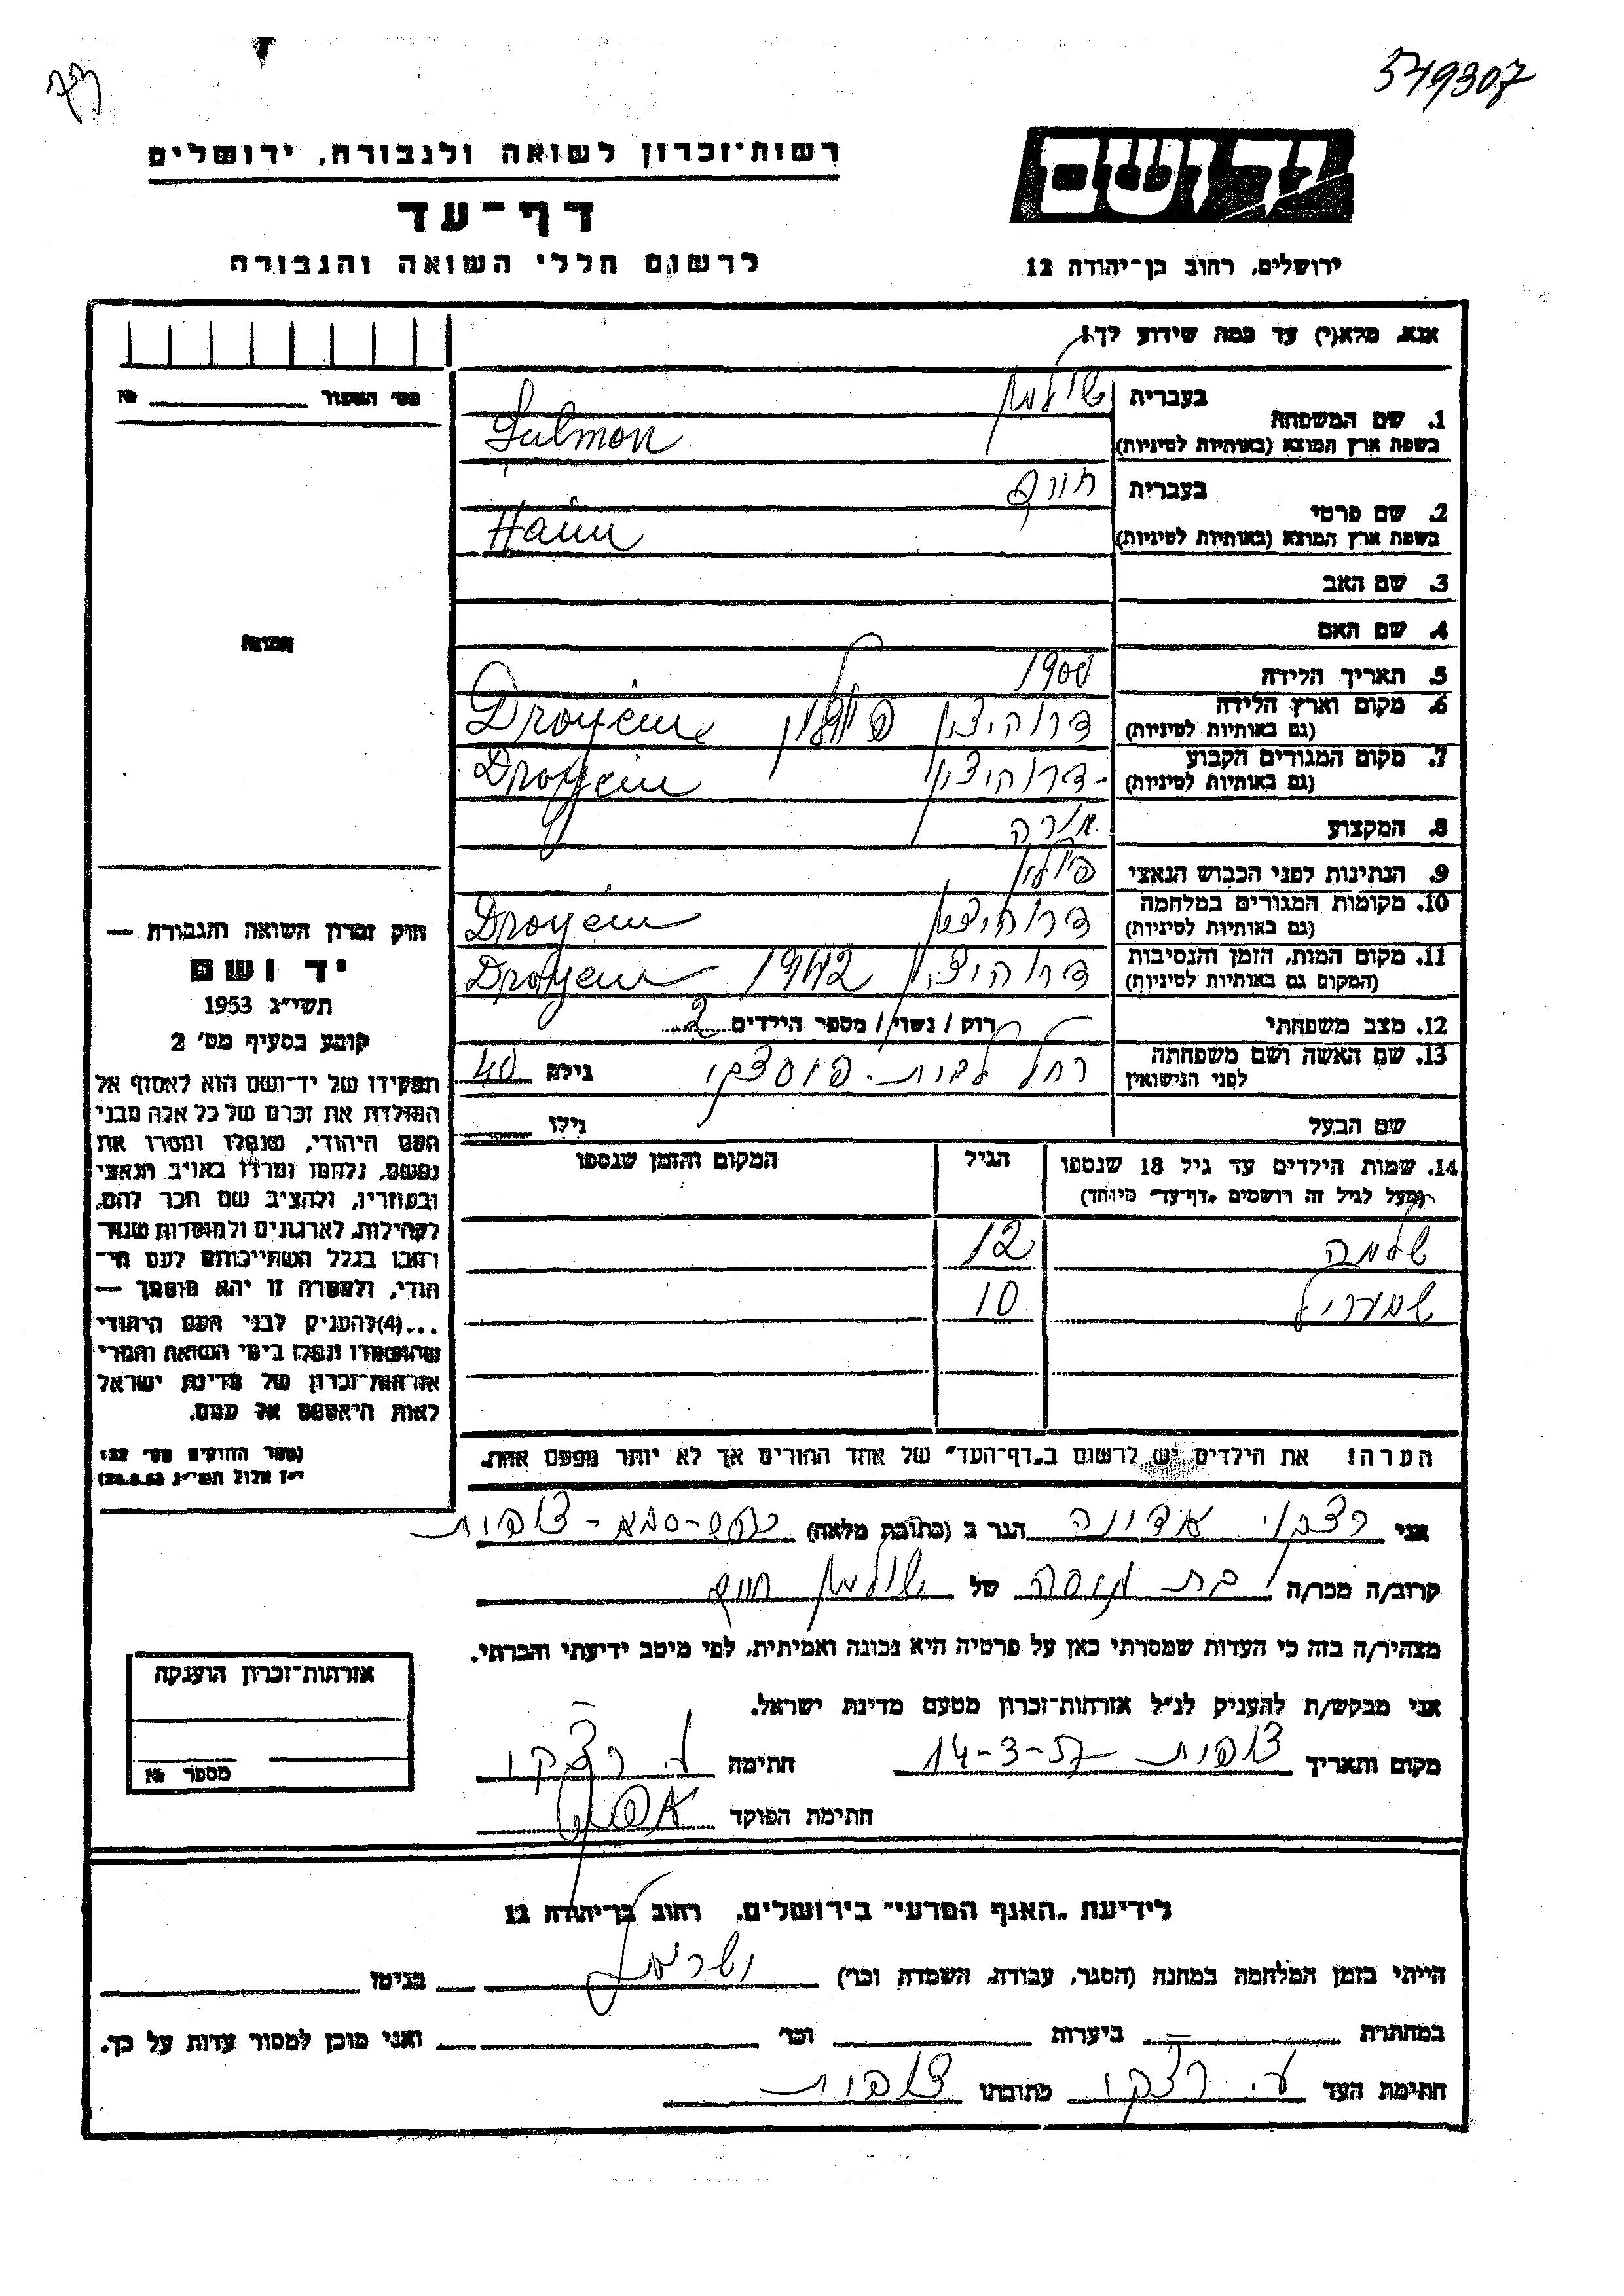 549307
רשות־זכרון לשואה ולגבורה, ירושלים
דף־עד
לרשום חללי השואה והגבורה
יד ושם
ירושלים, רחוב בן־יהודה 12
אנא, מלא(י) עד כמה שידוע לך!
מס׳ האשור № 
1. שם המשפחה בעברית שולמן
בשפת ארץ המוצא (באותיות לטיניות) Sulmon
2. שם פרטי בעברית חיים
בשפת ארץ המוצא (באותיות לטיניות) Haim
3. שם האב
4. שם האם
5. תאריך הלידה 1900
6. מקום וארץ הלידה דרוהיצין פולין
(גם באותיות לטיניות)
7. מקום המגורים הקבוע דרוהיצין
(גם באותיות לטיניות)
8. המקצוע מורה
9. הנתינות לפני הכבוש הנאצי פולין
10. מקומות המגורים במלחמה דרוהיצין
(גם באותיות לטיניות)
11. מקום המות, הזמן והנסיבות דרוהיצין 1942
(המקום גם באותיות לטיניות)
12. מצב משפחתי רווק / נשוי / מספר הילדים 2
13. שם האשה ושם משפחתה רחל לבית
לפני הנישואין גילה 40
שם הבעל גילו
14. שמות הילדים עד גיל 18 שנספו הגיל המקום והזמן שנספו
(מעל לגיל זה רושמים „דף־עד״ מיוחד)
שלמה 12
שמעריל 10
הערה! את הילדים יש לרשום ב„דף־העד״ של אחד ההורים אך לא יותר מפעם אחת.
תמונה
חוק זכרון השואה והגבורה —
יד ושם
תשי״ג 1953
קובע בסעיף מס׳ 2
תפקידו של יד־ושם הוא לאסוף אל
המולדת את זכרם של כל אלה מבני
העם היהודי, שנפלו ומסרו את
נפשם, נלחמו ומרדו באויב הנאצי
ובעוזריו, ולהציב שם וזכר להם,
לקהילות, לארגונים ולמוסדות שנח־
רבו בגלל השתייכותם לעם הי־
הודי, ולמטרה זו יהא מוסמך —
...(4) להעניק לבני העם היהודי
שהושמדו ונפלו בימי השואה והמרי
אזרחות־זכרון של מדינת ישראל
לאות היאספם אל עמם.
(ספר החוקים מס׳ 132
י״ז אלול תשי״ג 28.8.53)
אני אדונה הגר ב (כתובת מלאה) צופית
קרוב/ה מכר/ה בת של שולמן חיים
מצהיר/ה בזה כי העדות שמסרתי כאן על פרטיה היא נכונה ואמיתית, לפי מיטב ידיעתי והכרתי.
אני מבקש/ת להעניק לנ״ל אזרחות־זכרון מטעם מדינת ישראל.
מקום ותאריך צופית 14-3-57 חתימה
חתימת הפוקד
אזרחות־זכרון הוענקה
מספר №
לידיעת „האגף המדעי״ בירושלים, רחוב בן־יהודה 12
הייתי בזמן המלחמה במחנה (הסגר, עבודה, השמדה וכו׳) ישראל בגיטו
במחתרת ביערות וכו׳ ואני מוכן למסור עדות על כך.
חתימת העד כתובתו צופית